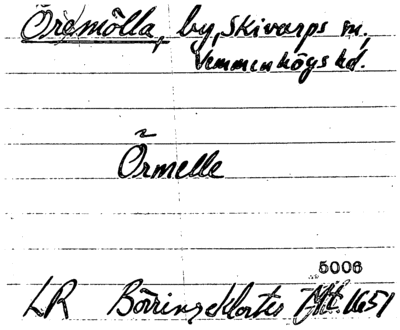 Öremölla, by, Skivarps sn,
Vemmenhögs hd.
Örmelle
5006
LR Börringekloster Jb. 1651